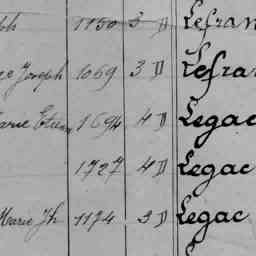 1150 3 D Lefran
Joseph 1069 3 D Lefra
arie Etien 1694 4 D Legac
1727 4 D Legac
Marie Jh 1174 3 D Legac